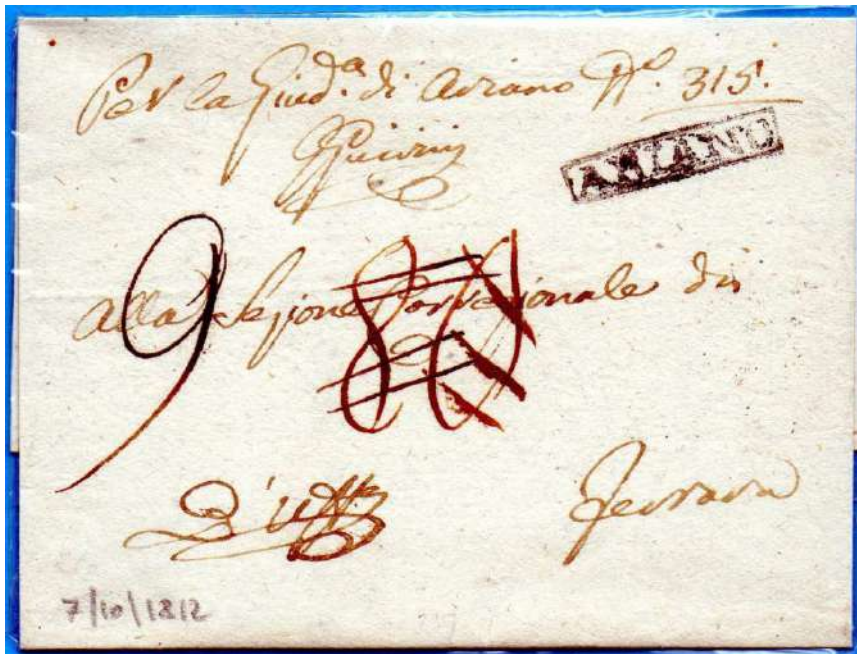 Per la Giud.ª di Aviano N.º 315.
AVIANO
9
Alla Sezione Correzionale di
D'Uff.º
Ferrara
7/10/1812